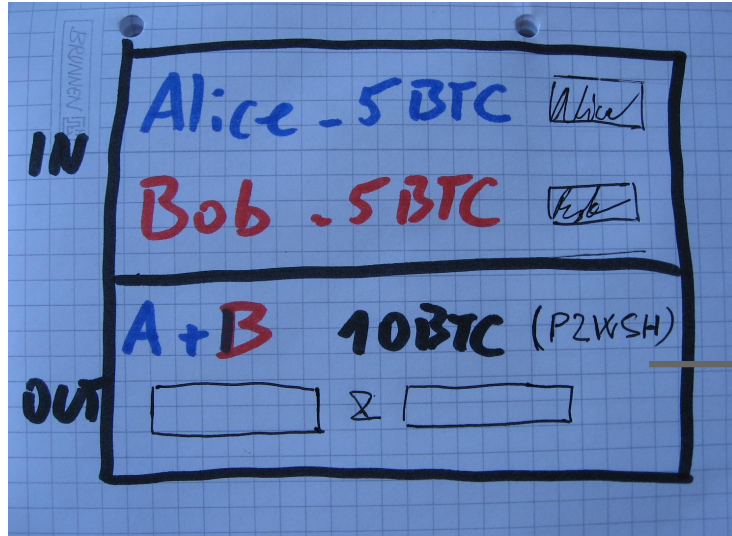 BRUNNEN
IN
Alice - 5 BTC Alice
Bob - 5 BTC Bob
A + B 10 BTC (P2WSH)
OUT
&